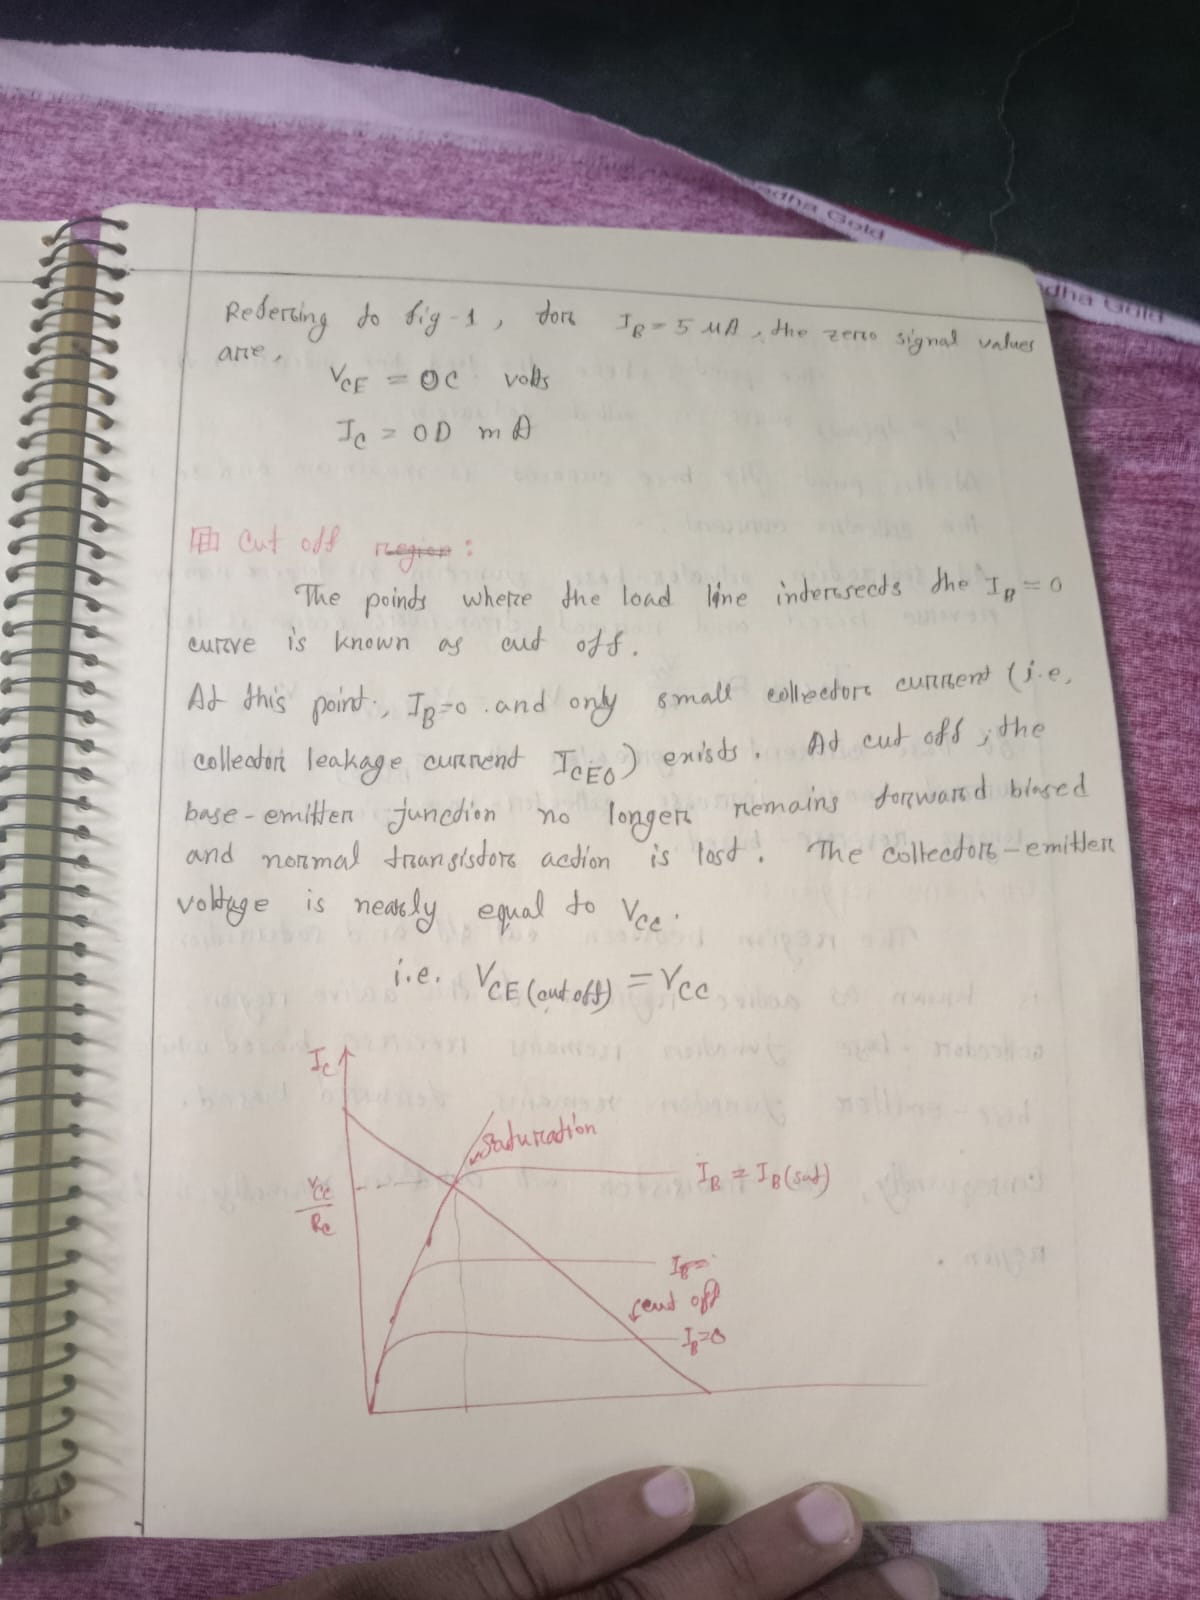 Referring to fig-1, for I_B = 5 μA, the zero signal values
are,
V_CE = OC volts
I_C = OD mA
Cut off region:
The points where the load line intersects the I_B = 0
curve is known as cut off.
At this point, I_B = 0 and only small collector current (i.e,
collector leakage current I_CEO) exists. At cut off, the
base-emitter junction no longer remains forward biased
and normal transistor action is lost. The collector-emitter
voltage is nearly equal to V_CC.
i.e. V_CE (cut off) = V_CC
I_C
saturation
V_CC
R_C
I_B = I_B(sat)
I_B =
cut off
I_B = 0
edha Gold
dha Gold